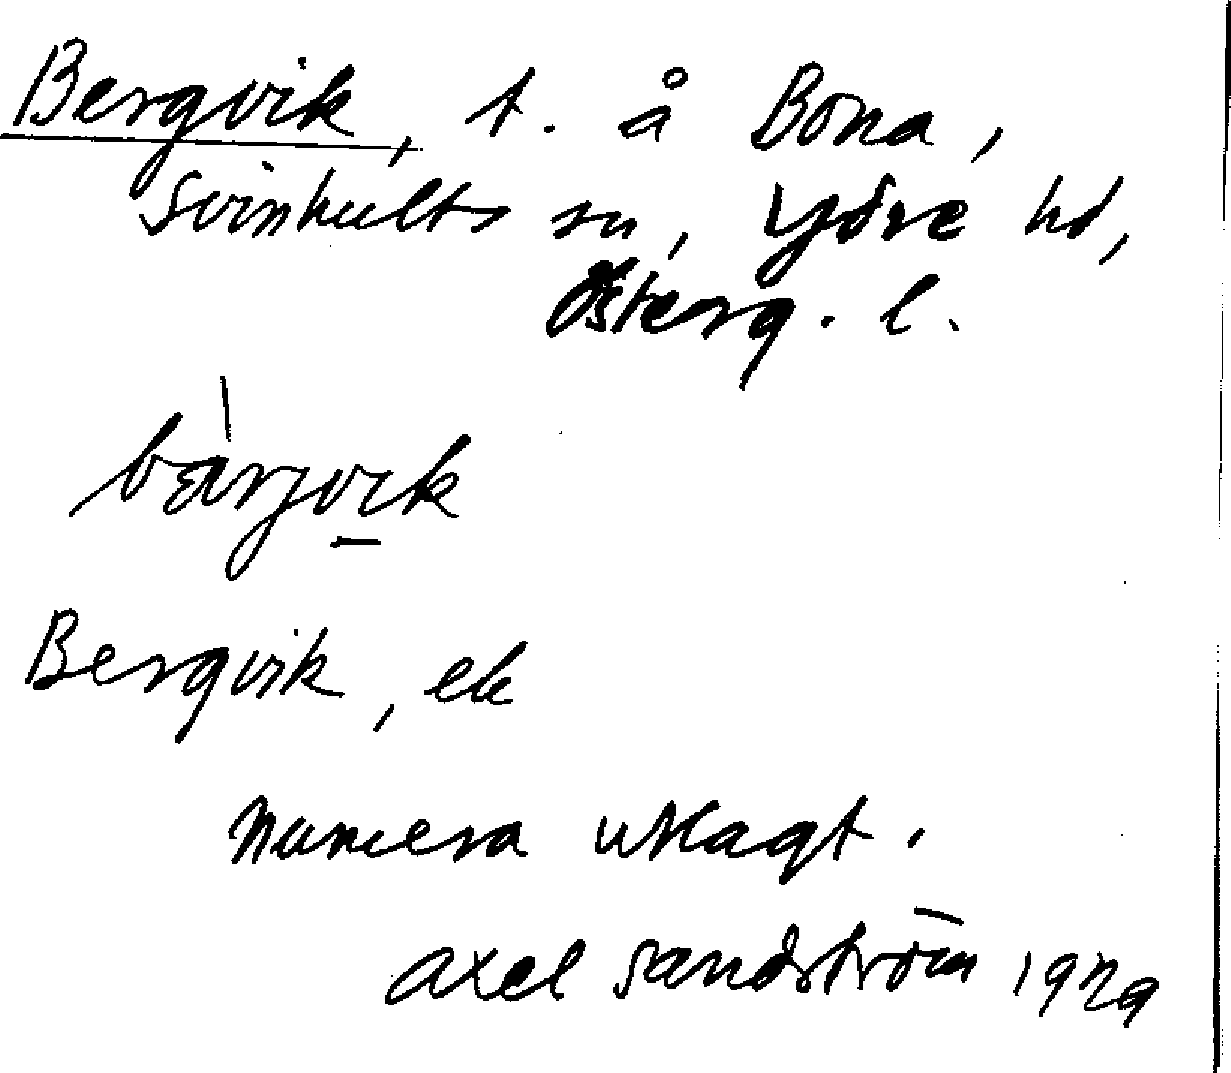 Bergvik, t. å Bona,
Svinhults sn, Ydre hd,
Österg. l.
bärjvik
Bergvik, ek
Numera utlagt.
Axel Sandström 1929